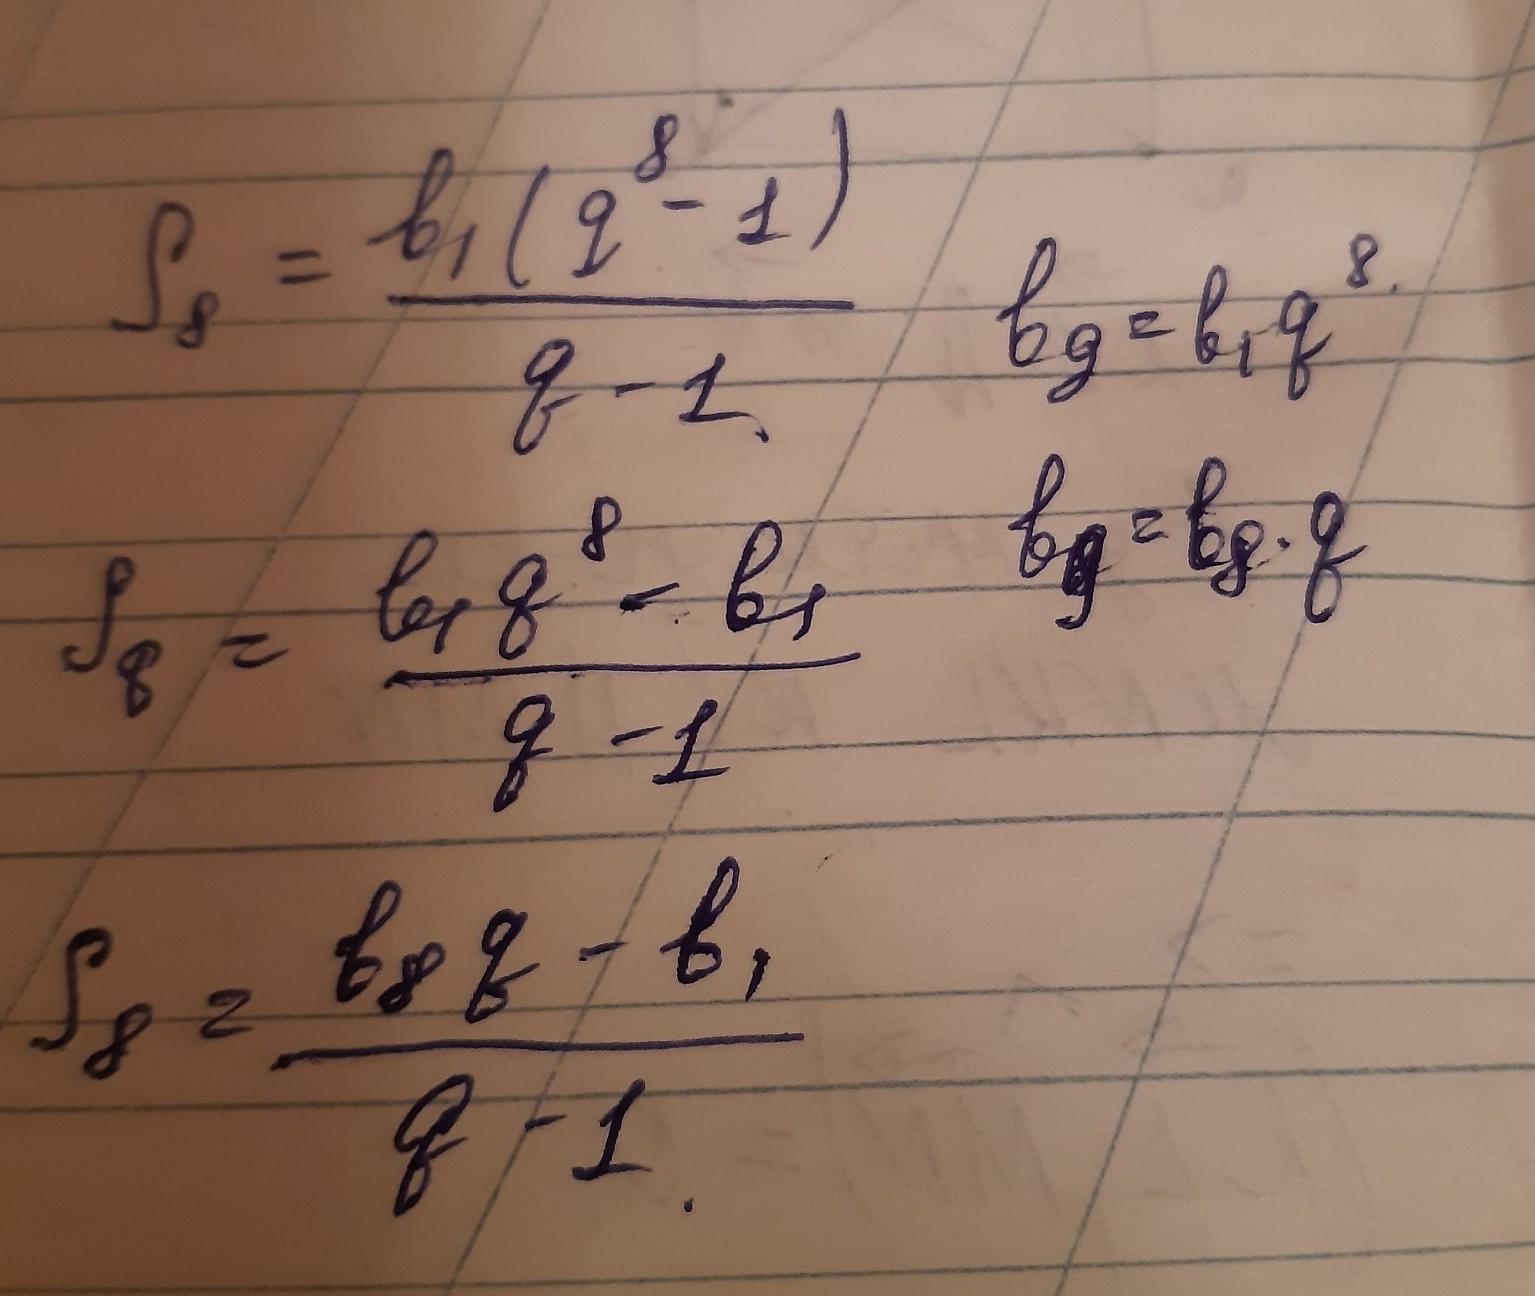 S₈ = b₁(q⁸ - 1) / q - 1.
b₉ = b₁q⁸.
S₈ = b₁q⁸ - b₁ / q - 1
b₉ = b₈ · q
S₈ = b₈q - b₁ / q - 1.